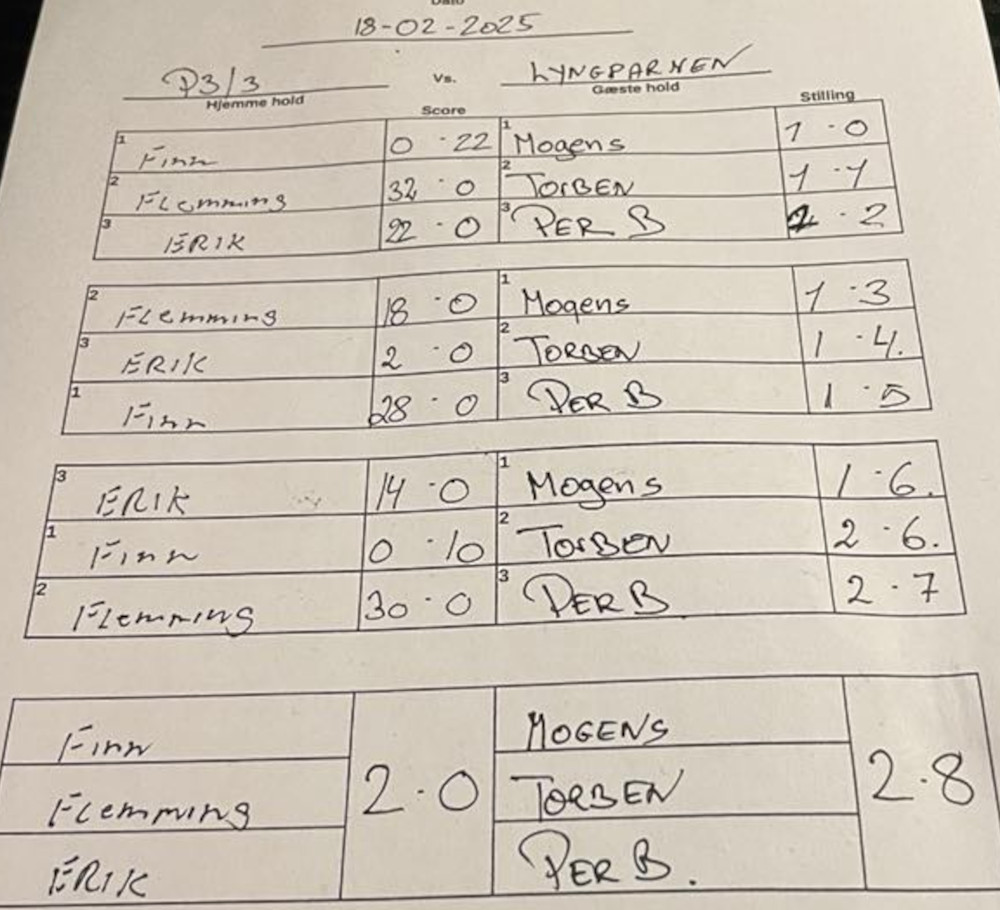 Dato
18-02-2025
P3/3 Vs. LYNGPARKEN
Hjemme hold Gæste hold
Score Stilling
1 Finn 0 · 22 1 Mogens 1 · 0
2 FLemming 32 · 0 2 TORBEN 1 · 1
3 ERIK 22 · 0 3 PER B · 2
2 FLemming 18 · 0 1 Mogens 1 · 3
3 ERIK 2 · 0 2 TORBEN 1 · 4.
1 Finn 28 · 0 3 PER B 1 · 5
3 ERIK 14 · 0 1 Mogens 1 · 6.
1 Finn 0 · 10 2 TORBEN 2 · 6.
2 FLemming 30 · 0 3 PER B 2 · 7
Finn MOGENS
FLemming 2 · 0 TORBEN 2 · 8
ERIK PER B.